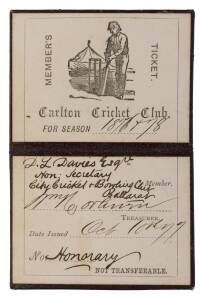 MEMBER'S
TICKET.
Carlton Cricket Club.
FOR SEASON 187 /8
D. L. Davies Esqre
Hon: Secretary
City Cricket & Bowling Club Member.
Ballarat
TREASURER.
Date Issued Oct
No. Honorary
NOT TRANSFERABLE.